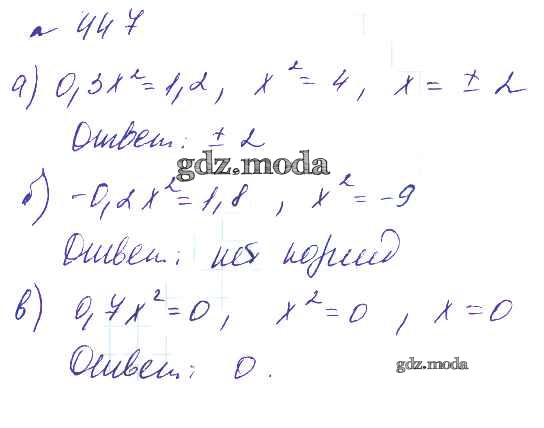 № 447
а) 0,3x² = 1,2, x² = 4, x = ± 2
Ответ: ± 2
gdz.moda
б) -0,2x² = 1,8, x² = -9
Ответ: нет корней
в) 0,7x² = 0, x² = 0, x = 0
Ответ: 0.
gdz.moda